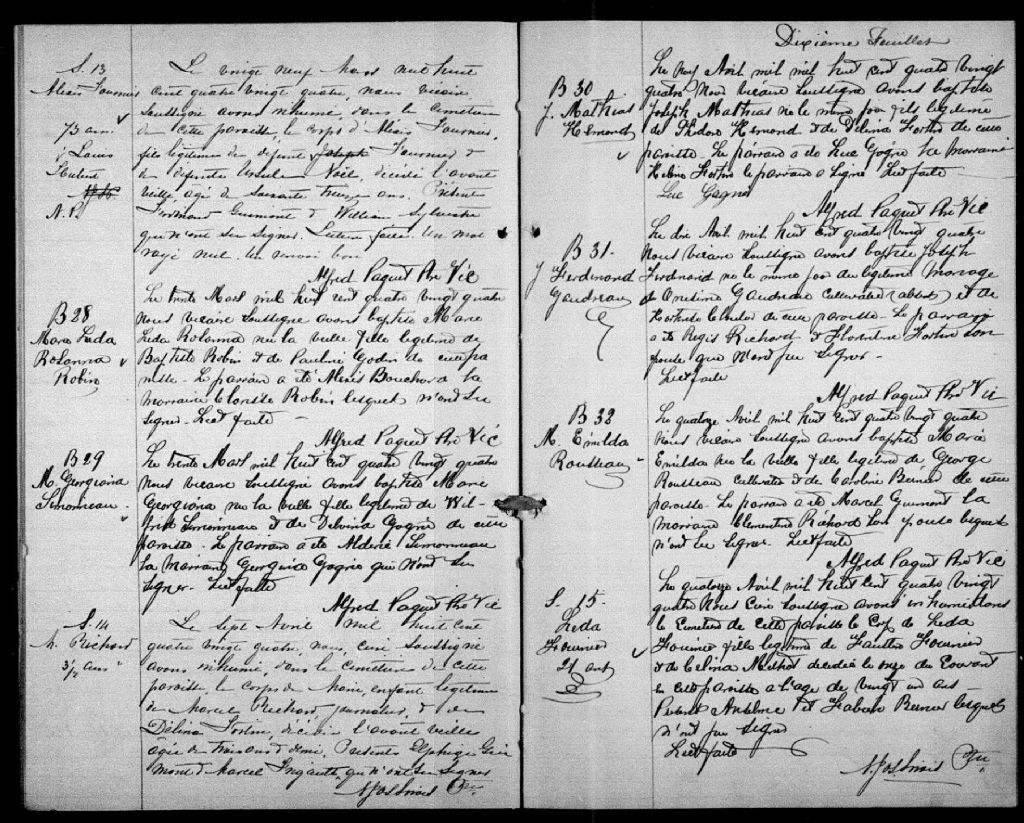 S. 13
Alexis Fournier
73 ans
N. P.
Le vingt neuf Mars mil huit
cent quatre vingt quatre, nous vicaire
soussigné avons inhumé, dans le cimetière
de cette paroisse, le corps d'Alexis Fournier,
fils légitime de défunt Joseph Fournier &
de défunte Ursule Noël, décédé l'avant
veille, agé de soixante treize ans. Présents
Ferdinand Guimont & William Sylvestre
qui n'ont su signer. Lecture faite. Un mot
rayé nul. Un renvoi bon
Alfred Paquet Ptre Vic
B 28
Marie Leda
Rosanna
Robin
Le trente Mars mil huit cent quatre vingt quatre
Nous vicaire soussigné avons baptisé Marie
Leda Rosanna née la veille fille légitime de
Baptiste Robin et de Pauline Godin de cette pa
roisse. Le parrain a été Alexis Bouchard la
marraine Clorisse Robin lesquels n'ont su
signer. Lect faite
Alfred Paquet Ptre Vic
B 29
M. Georgiana
Simoneau
Le trente Mars mil huit cent quatre vingt quatre
Nous vicaire soussigné avons baptisé Marie
Georgiana née la veille fille légitime de Wil-
frid Simonneau et de Delvina Gagné de cette
paroisse. Le parrain a été Alderic Simonneau
la Marraine Georgina Gagné qui n'ont su
signer. Lect faite
Alfred Paquet Ptre Vic
S. 14
M. Richard
3 1/2 ans
Le sept Avril mil huit cent
quatre vingt quatre, nous, curé soussigné
avons inhumé, dans le cimetière de cette
paroisse, le corps de Marie, enfant légitime
de Marcel Richard, journalier, & de
Délina Fortin, décédée l'avant veille
agée de trois ans & demi, Présents Elphège Gui
mont & Marcel qui n'ont su signer
Ptre
Dixième Feuillet
B 30
J. Mathias
Hemond
Le neuf Avril mil mil huit cent quatre vingt
quatre Nous vicaire soussigné avons baptisé
Joseph Mathias né le même jour fils légitime
de Hemond & de Délina Fortin de cette
paroisse. Le parrain a été Luc Gagné la marraine
Fortin le parrain a signé. Lect faite
Luc Gagné
Alfred Paquet Ptre Vic
B 31.
J Ferdinand
Gaudreau
Le dix Avril mil huit cent quatre vingt quatre
Nous vicaire soussigné avons baptisé Joseph
Ferdinand né le même jour du légitime Mariage
de Gaudreau cultivateur (absent) et de
de cette paroisse. Le parrain
a été Regis Richard & Florentine Fortin son
épouse qui n'ont pu signer.
Lect faite
Alfred Paquet Ptre Vic
B 32
M. Emilda
Rousseau
Le quatorze Avril mil huit cent quatre vingt quatre
Nous vicaire soussigné avons baptisé Marie
Emilda née la veille fille légitime de George
Rousseau cultivateur et de Caroline Bernier de cette
paroisse. Le parrain a été Marcel Guimont la
marraine Clementine Richard son épouse lesquels
n'ont su signer. Lect faite
Alfred Paquet Ptre Vic
S. 15.
Leda
Fournier
21 ans
Le quatorze Avril mil huit cent quatre vingt
quatre Nous Curé soussigné avons inhumé dans
le Cimetière de cette paroisse le Corps de Leda
Fournier fille légitime de Fournier
et de Celina Methot decédée le onze du Courant
en cette paroisse a l'age de vingt un ans
Présents Anselme et Fabien Bernier lesquels
n'ont pu signer
Lect faite
Ptre